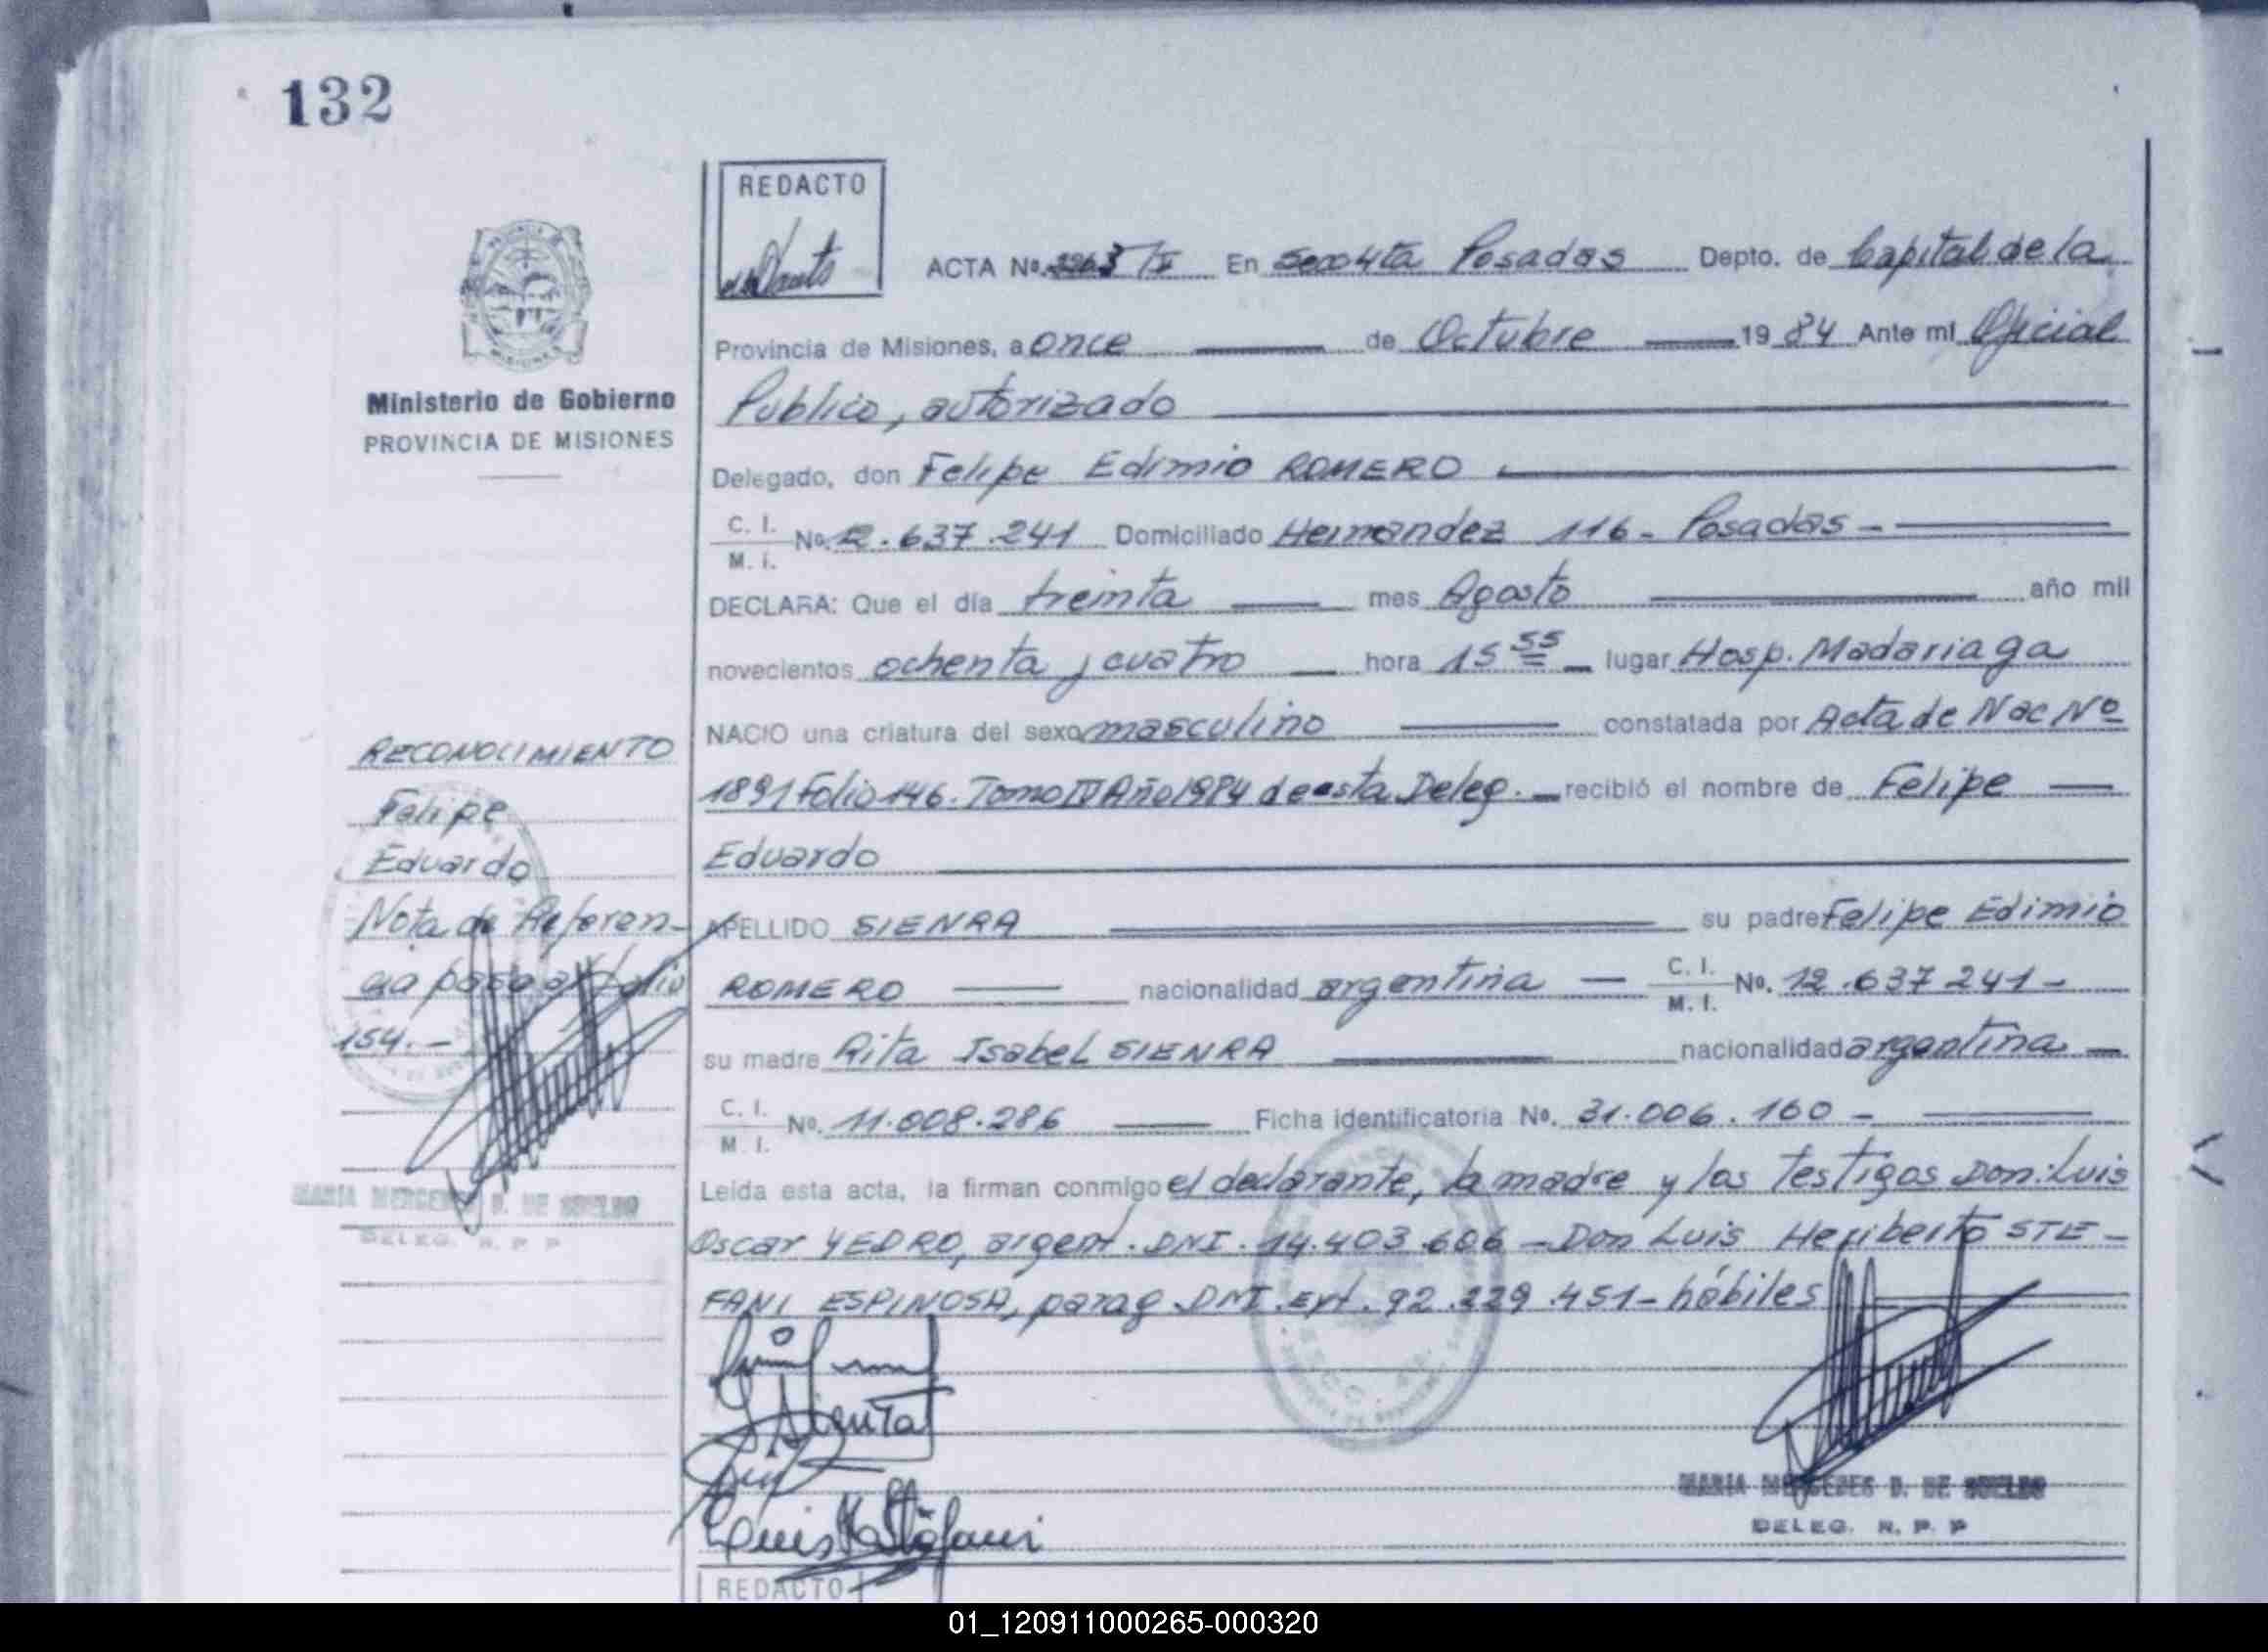 132
REDACTO
ACTA Nº 2263/I En Secc 4ta Posadas Depto. de Capital de la
Provincia de Misiones, a once de Octubre 1984 Ante mí Oficial
Ministerio de Gobierno
PROVINCIA DE MISIONES
Público, autorizado
Delegado, don Felipe Edimio ROMERO
C. I.
M. I.
Nº. 12.637.241 Domiciliado Hernandez 116 - Posadas -
DECLARA: Que el día treinta mes Agosto año mil
novecientos ochenta y cuatro hora 15 55 lugar Hosp. Madariaga
NACIO una criatura del sexo masculino constatada por Acta de Nac Nº
1891 Folio 146. Tomo IV Año 1984 de esta Deleg. recibió el nombre de Felipe
Eduardo
APELLIDO SIENRA su padre Felipe Edimio
ROMERO nacionalidad argentina C. I. M. I. Nº. 12.637.241 -
su madre Rita Isabel SIENRA nacionalidad argentina
C. I.
M. I.
Nº. 11.008.286 Ficha identificatoria Nº. 31.006.160 -
Leída esta acta, la firman conmigo el declarante, la madre y los testigos Don: Luis
Oscar YEDRO, argent. DNI. 14.403.606 - Don Luis Heriberto STE-
FANI ESPINOSA, parag. DNI. Ext. 92.229.451 - hábiles
RECONOCIMIENTO
Felipe
Eduardo
Nota de Referen-
cia pasa al folio
154. -
MARIA MERCEDES D. DE SUELDO
DELEG. R. P. P
MARIA MERCEDES D. DE SUELDO
DELEG. R. P. P
REDACTO
01_120911000265-000320